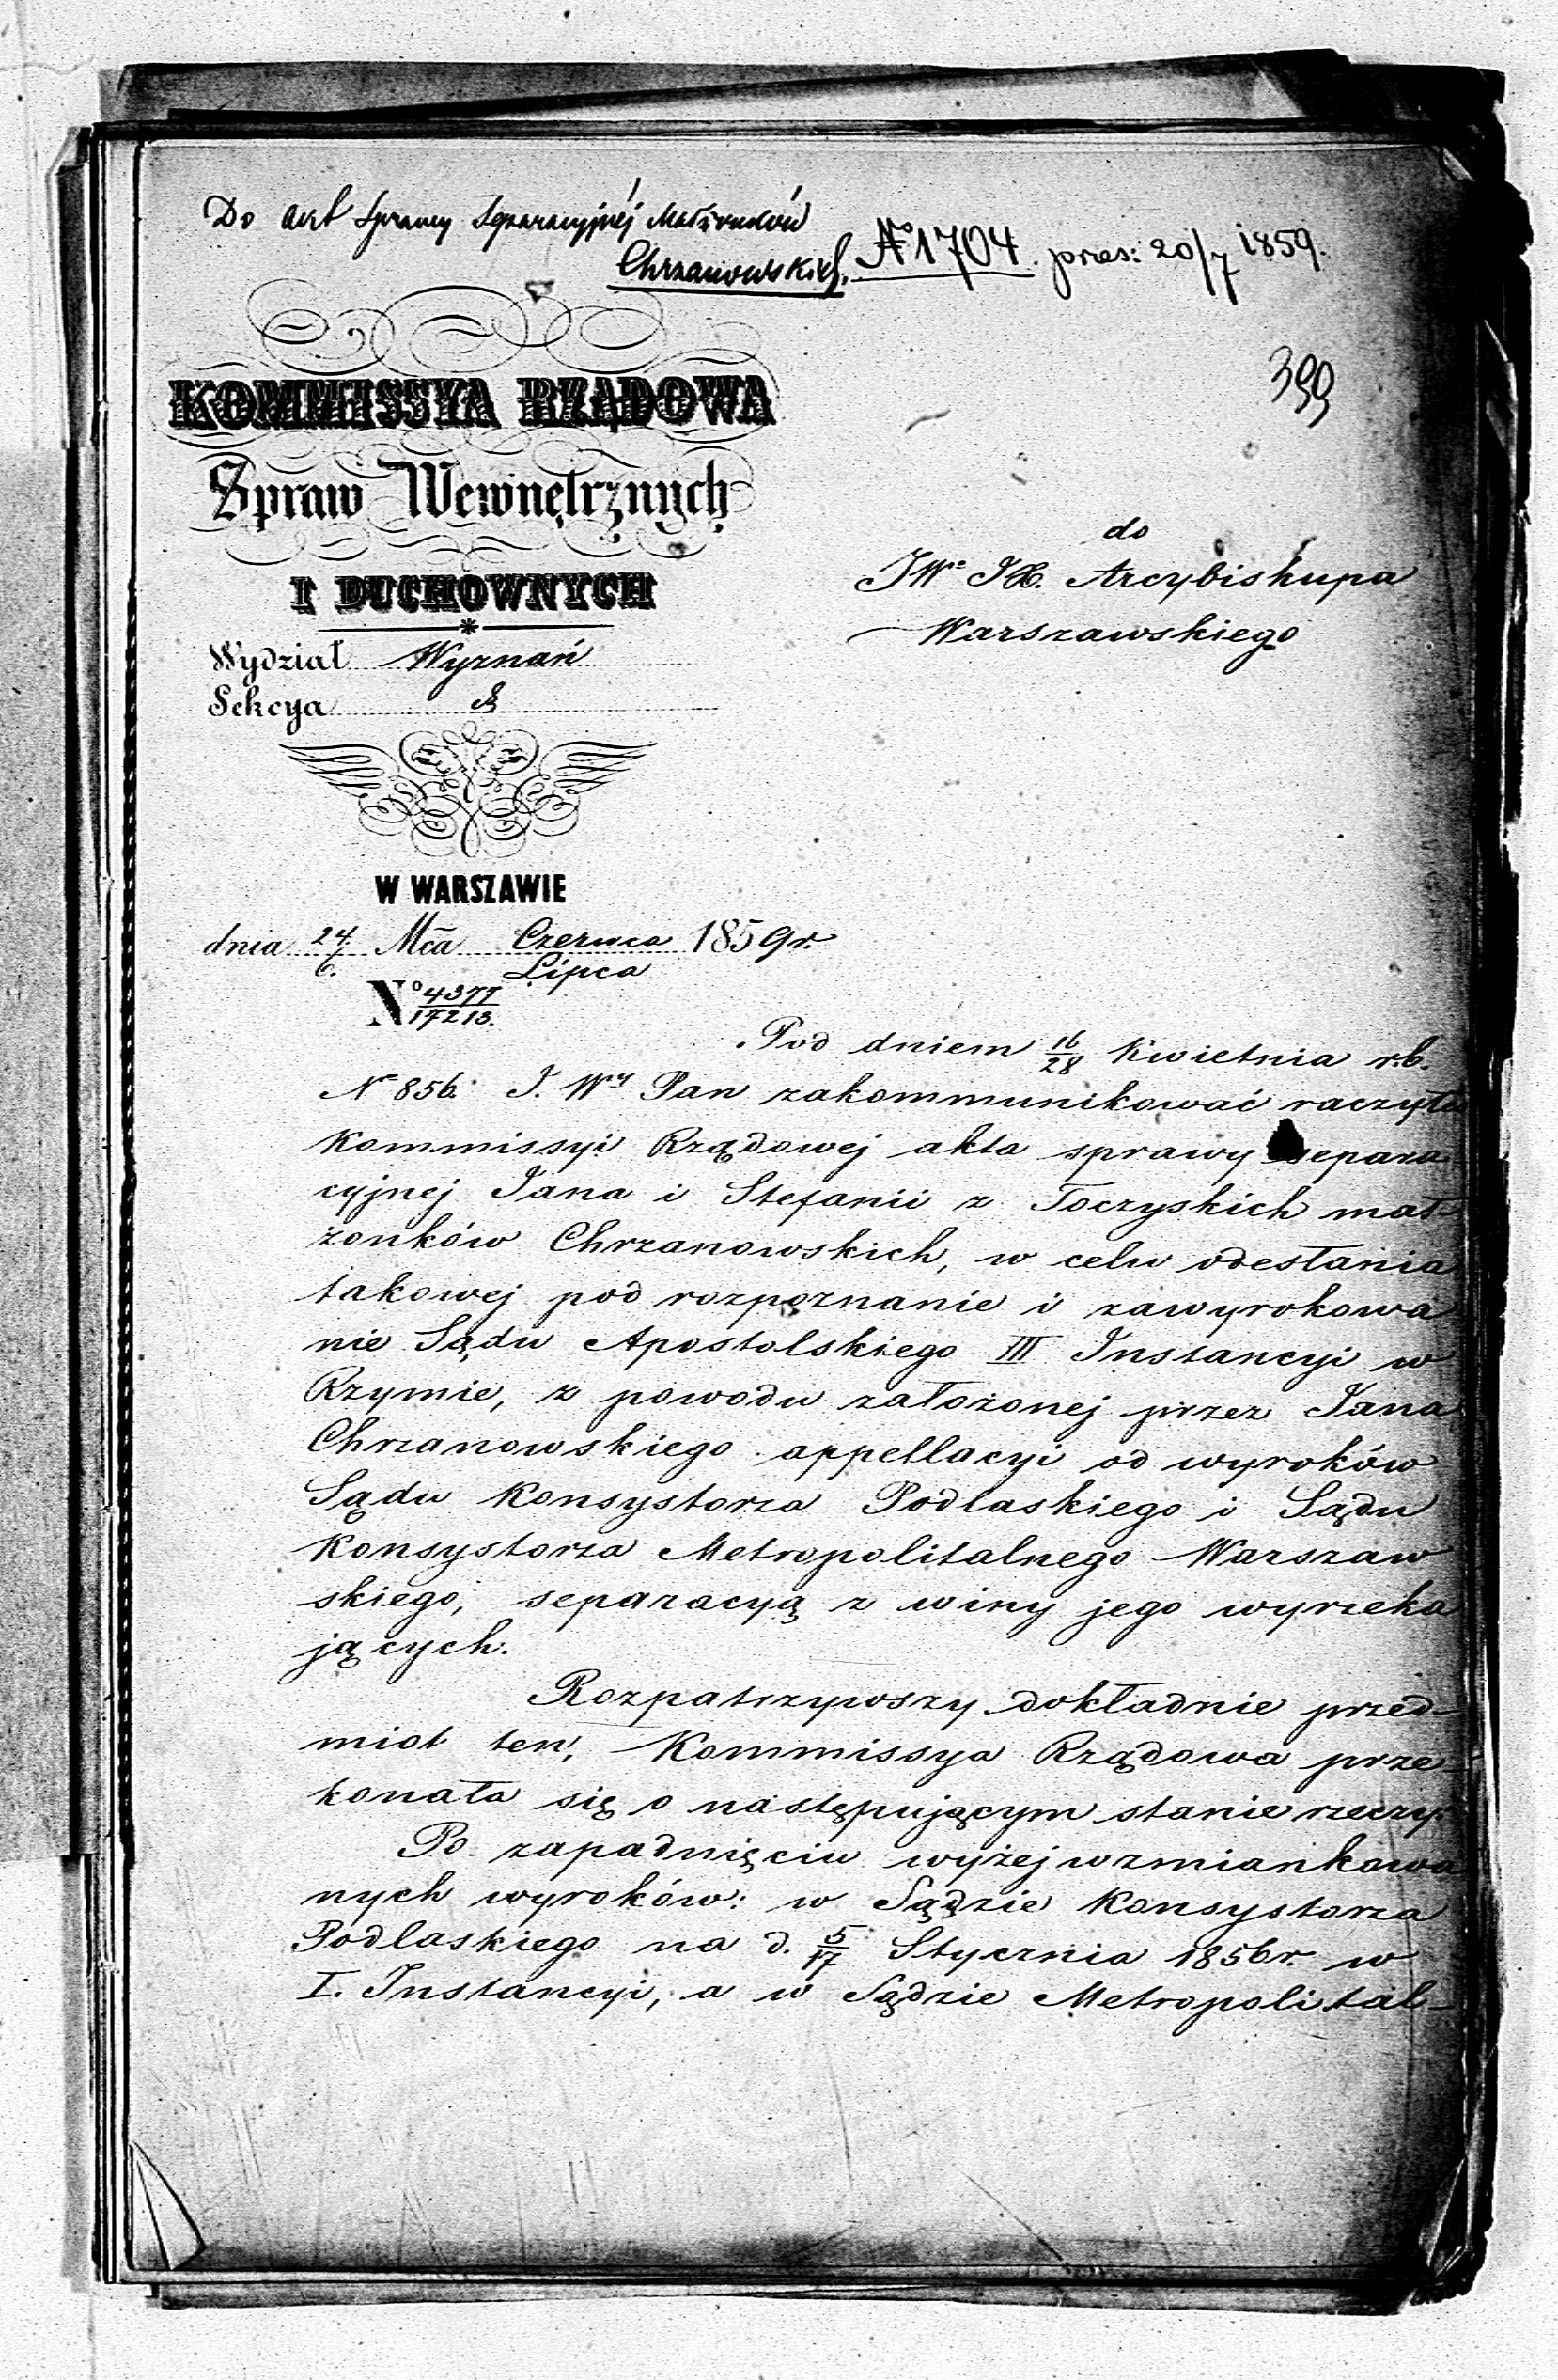 Do akt Sprawy Separacyjnéj Małżonków
Chrzanowskich.
№ 1704. pres: 20/7 1859.
399
KOMMISSYA RZĄDOWA
Spraw Wewnętrznych
I DUCHOWNYCH
Wydział Wyznań
Sekcya
W WARSZAWIE
dnia 24./6. Mca Czerwca/Lipca 1859r.
No 4377/17213.
do
JWo JX. Arcybiskupa
Warszawskiego
Pod dniem 16/28 Kwietnia r.b.
N 856. J. Wy Pan zakommunikować raczyłeś
Kommissyi Rządowej akta sprawy separa
cyjnej Jana i Stefanii z Toczyskich mał-
żonków Chrzanowskich, w celu odesłania
takowej pod rozpoznanie i zawyrokowa
nie Sądu Apostolskiego III Instancyi w
Rzymie, z powodu założonej przez Jana
Chrzanowskiego appellacyi od wyroków
Sądu Konsystorza Podlaskiego i Sądu
Konsystorza Metropolitalnego Warszaw
skiego, separacyą z winy jego wyrzeka
jących.
Rozpatrzywszy dokładnie przed-
miot ten, Kommissya Rządowa prze-
konała się o następującym stanie rzeczy:
Po zapadnięciu wyżej wzmiankowa
nych wyroków: w Sądzie Konsystorza
Podlaskiego na d. 5/17 Stycznia 1856r. w
I. Instancyi, a w Sądzie Metropolital-